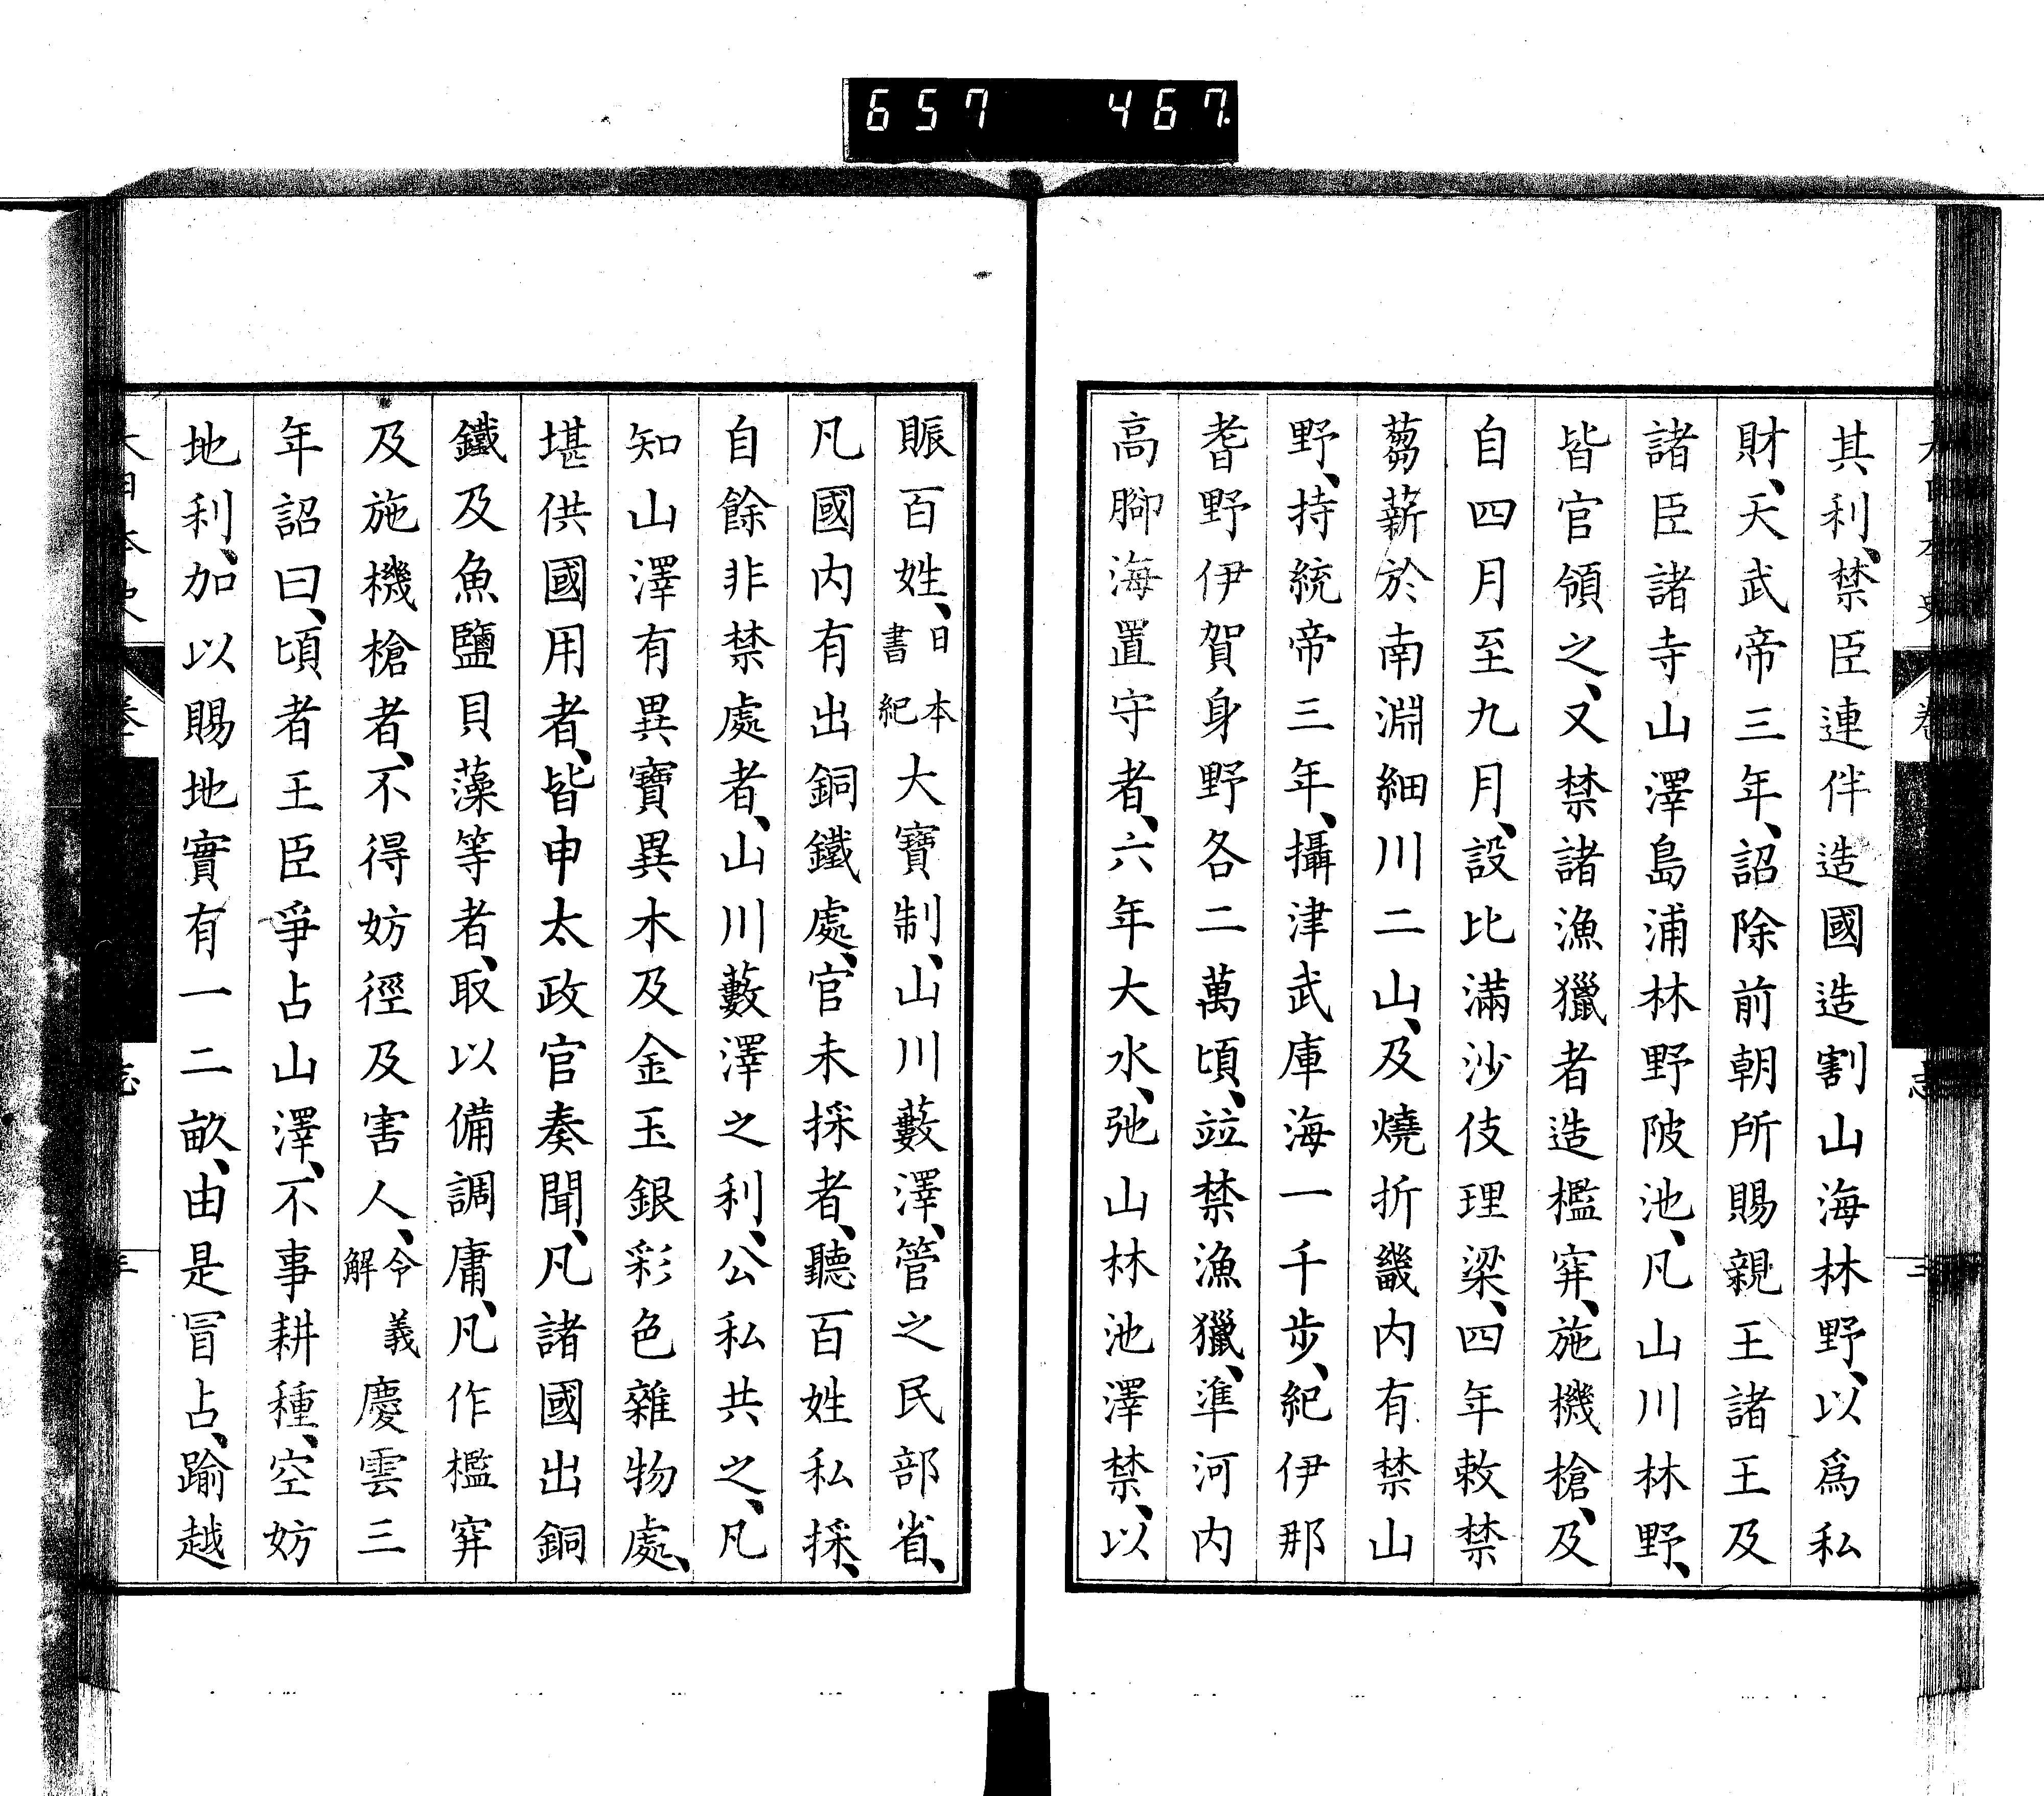 657 467
其利、禁臣連伴造國造割山海林野、以爲私
財、天武帝三年、詔除前朝所賜親王諸王及
諸臣諸寺山澤島浦林野陂池、凡山川林野、
皆官領之、又禁諸漁獵者造檻穽、施機槍、及
自四月至九月、設比滿沙伎理梁、四年敕禁
蒭薪於南淵細川二山、及燒折畿内有禁山
野、持統帝三年、攝津武庫海一千步、紀伊那
耆野伊賀身野各二萬頃、竝禁漁獵、準河内
高腳海置守者、六年大水、弛山林池澤禁、以
賑百姓、日本書紀大寶制、山川藪澤、管之民部省、
凡國内有出銅鐵處、官未採者、聽百姓私採、
自餘非禁處者、山川藪澤之利、公私共之、凡
知山澤有異寶異木及金玉銀彩色雜物處、
堪供國用者、皆申太政官奏聞、凡諸國出銅
鐵及魚鹽貝藻等者、取以備調庸、凡作檻穽
及施機槍者、不得妨徑及害人、令義解慶雲三
年詔曰、頃者王臣爭占山澤、不事耕種、空妨
地利、加以賜地實有一二畝、由是冒占、踰越
大日本史 卷 志 三